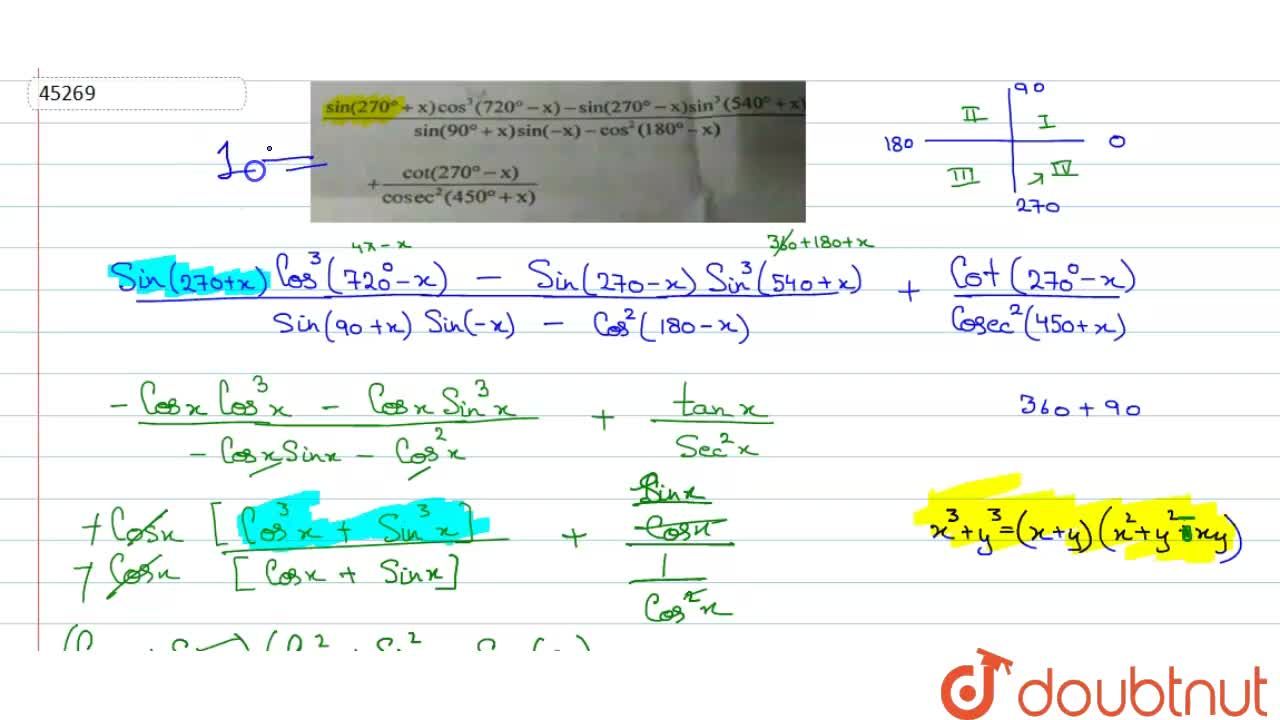 45269
sin(270° + x)cos³(720° – x) – sin(270° – x)sin³(540° + x)
sin(90° + x)sin(–x) – cos²(180° – x)
+ cot(270° – x)
cosec²(450° + x)
1 =
90
II I
180 0
III IV
270
4π – x 360+180+x
Sin(270+x) Cos³(720° – x) – Sin(270 – x) Sin³(540+x) + Cot(270° – x)
Sin(90+x) Sin(-x) – Cos²(180 – x) Cosec²(450+x)
- Cosx Cos³x – Cosx Sin³x + tan x
- Cosx Sinx – Cos²x Sec²x
360 + 90
+ Cosx [Cos³x + Sin³x] + Sinx
Cosx
+ Cosx [Cosx + Sinx] 1
Cos²x
x³+y³=(x+y)(x²+y²-xy)
doubtnut